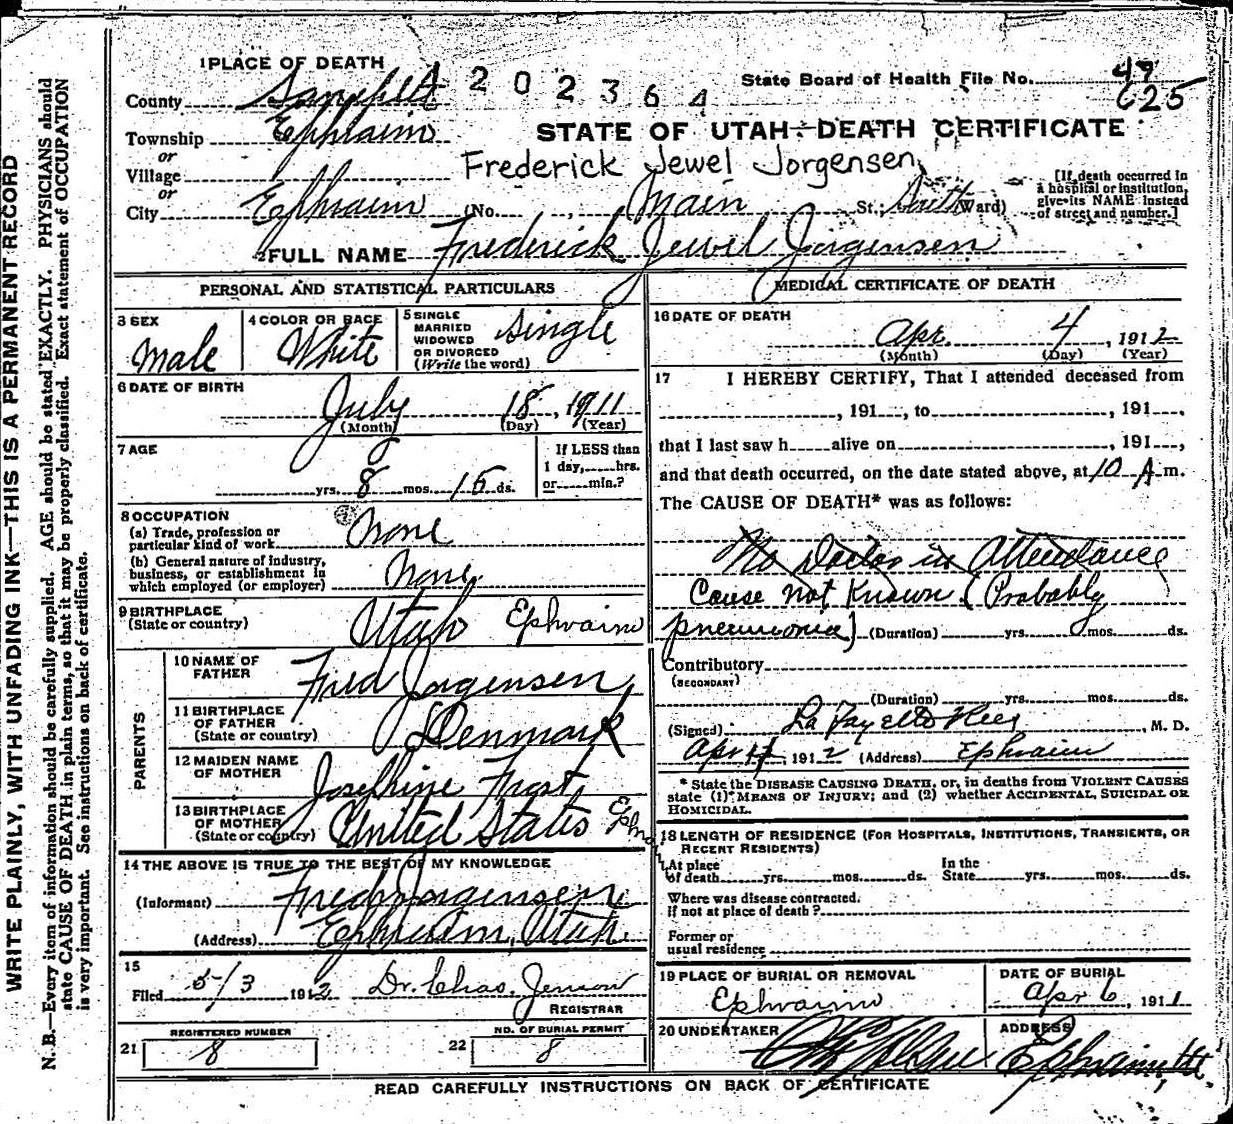 WRITE PLAINLY, WITH UNFADING INK—THIS IS A PERMANENT RECORD
N. B.—Every item of information should be carefully supplied. AGE should be stated EXACTLY. PHYSICIANS should
state CAUSE OF DEATH in plain terms, so that it may be properly classified. Exact statement of OCCUPATION
is very important. See instructions on back of certificate.
1 PLACE OF DEATH
County Sanpete
A 202364
State Board of Health File No. 49
625
Township Ephraim
STATE OF UTAH—DEATH CERTIFICATE
or
Village
Frederick Jewel Jorgensen
or
City Ephraim (No. , Main St.; South Ward)
[If death occurred in
a hospital or institution,
give its NAME instead
of street and number.]
2 FULL NAME Frederick Jewel Jorgensen
PERSONAL AND STATISTICAL PARTICULARS
3 SEX
Male
4 COLOR OR RACE
White
5 SINGLE
MARRIED
WIDOWED
OR DIVORCED
(Write the word)
Single
6 DATE OF BIRTH
July 18, 1911
(Month) (Day) (Year)
7 AGE
yrs. 8 mos. 15 ds.
If LESS than
1 day, hrs.
or min.?
8 OCCUPATION
(a) Trade, profession or
particular kind of work None
(b) General nature of industry,
business, or establishment in
which employed (or employer) None
9 BIRTHPLACE
(State or country) Utah Ephraim
PARENTS
10 NAME OF
FATHER Fred Jorgensen
11 BIRTHPLACE
OF FATHER
(State or country) Denmark
12 MAIDEN NAME
OF MOTHER Josephine Frost
13 BIRTHPLACE
OF MOTHER
(State or country) United States
14 THE ABOVE IS TRUE TO THE BEST OF MY KNOWLEDGE
(Informant) Fred Jorgensen
(Address) Ephraim, Utah
15
Filed 5/3 1912 Dr. Chas. Jenson
REGISTRAR
REGISTERED NUMBER
21 8
NO. OF BURIAL PERMIT
22 8
MEDICAL CERTIFICATE OF DEATH
16 DATE OF DEATH
Apr. 4, 1912
(Month) (Day) (Year)
17 I HEREBY CERTIFY, That I attended deceased from
, 191 , to , 191 ,
that I last saw h alive on , 191 ,
and that death occurred, on the date stated above, at 10 A m.
The CAUSE OF DEATH* was as follows:
No Doctor in Attendance
Cause not Known (Probably
pneumonia) (Duration) yrs. mos. ds.
Contributory
(SECONDARY)
(Duration) yrs. mos. ds.
(Signed) La Fayette Rees, M. D.
Apr 1912 (Address) Ephraim
* State the DISEASE CAUSING DEATH, or, in deaths from VIOLENT CAUSES
state (1) MEANS OF INJURY; and (2) whether ACCIDENTAL, SUICIDAL OR
HOMICIDAL.
18 LENGTH OF RESIDENCE (FOR HOSPITALS, INSTITUTIONS, TRANSIENTS, OR
RECENT RESIDENTS)
At place
of death yrs. mos. ds.
In the
State yrs. mos. ds.
Where was disease contracted,
if not at place of death?
Former or
usual residence
19 PLACE OF BURIAL OR REMOVAL
Ephraim
DATE OF BURIAL
Apr 6, 1911
20 UNDERTAKER
ADDRESS
Ephraim, Ut.
READ CAREFULLY INSTRUCTIONS ON BACK OF CERTIFICATE